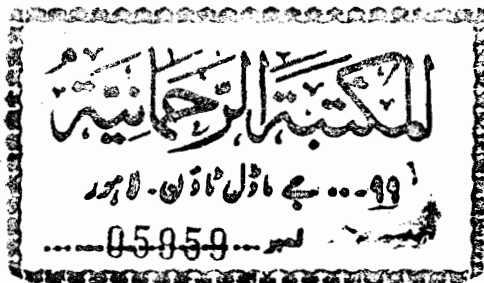 المكتبة الرحمانية
۹۹... جے ماڈل ٹاؤن - لاہور
نمبر ...05059...